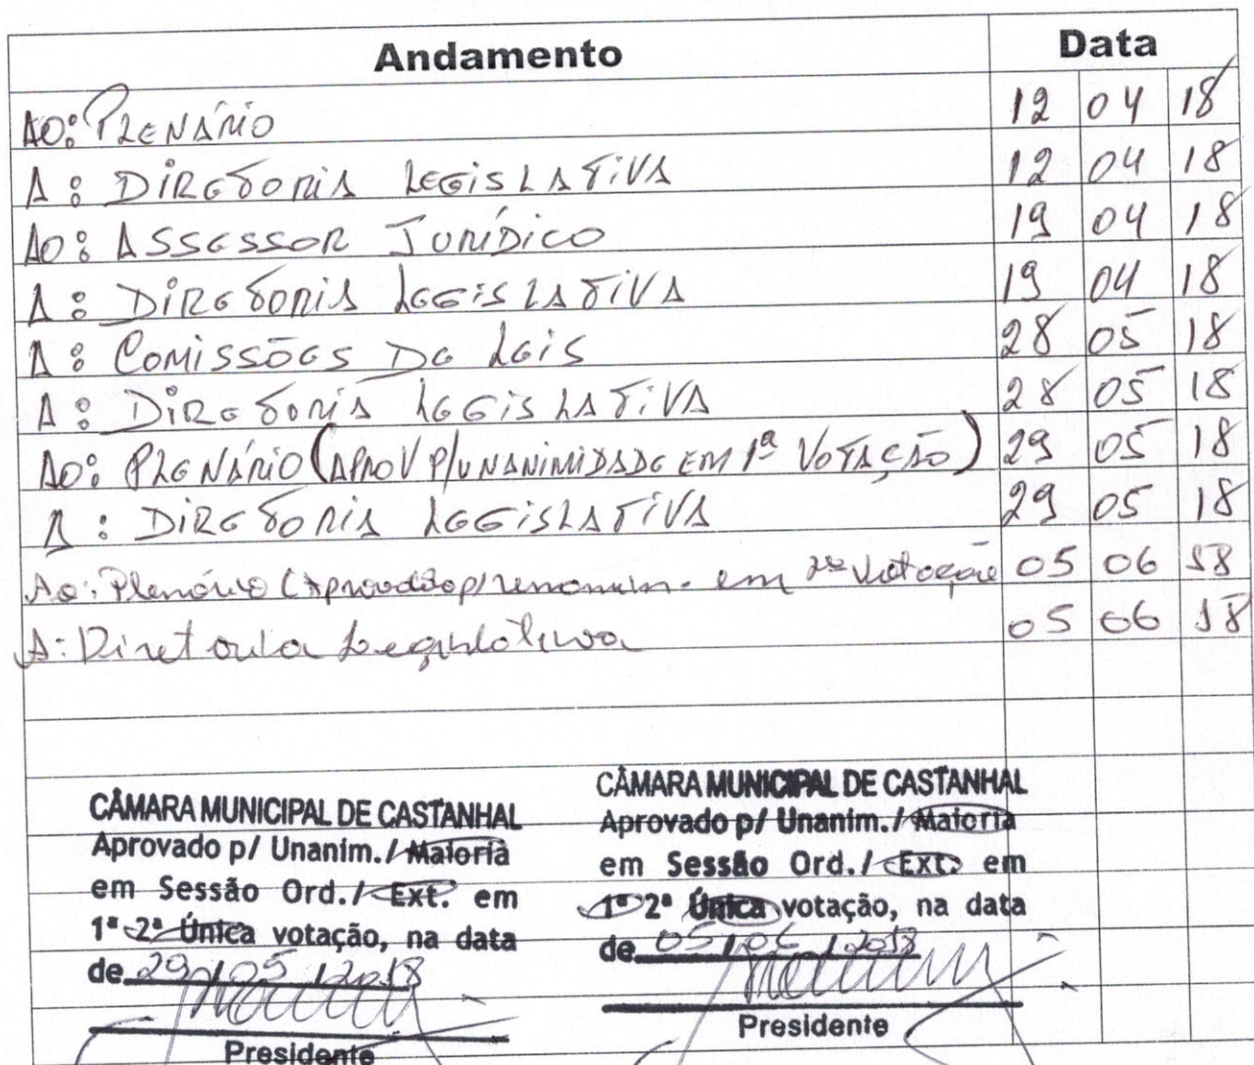 Andamento Data
AO: PLENÁRIO 12 04 18
A: DIRETORIA LEGISLATIVA 12 04 18
AO: ASSESSOR JURÍDICO 19 04 18
A: DIRETORIA LEGISLATIVA 19 04 18
A: COMISSÕES DE LEIS 28 05 18
A: DIRETORIA LEGISLATIVA 28 05 18
AO: PLENÁRIO (APROV P/UNANIMIDADE EM 1ª VOTAÇÃO) 29 05 18
A: DIRETORIA LEGISLATIVA 29 05 18
Ao: Plenário (Aprovado p/ unanim. em 2ª Votação 05 06 18
A: Diretoria Legislativa 05 06 18
CÂMARA MUNICIPAL DE CASTANHAL
Aprovado p/ Unanim./ Maioria
em Sessão Ord./ Ext. em
1ª 2ª Única votação, na data
de 29/05/2018
Presidente
CÂMARA MUNICIPAL DE CASTANHAL
Aprovado p/ Unanim./ Maioria
em Sessão Ord./ Ext. em
1ª 2ª Única votação, na data
de 05/06/2018
Presidente